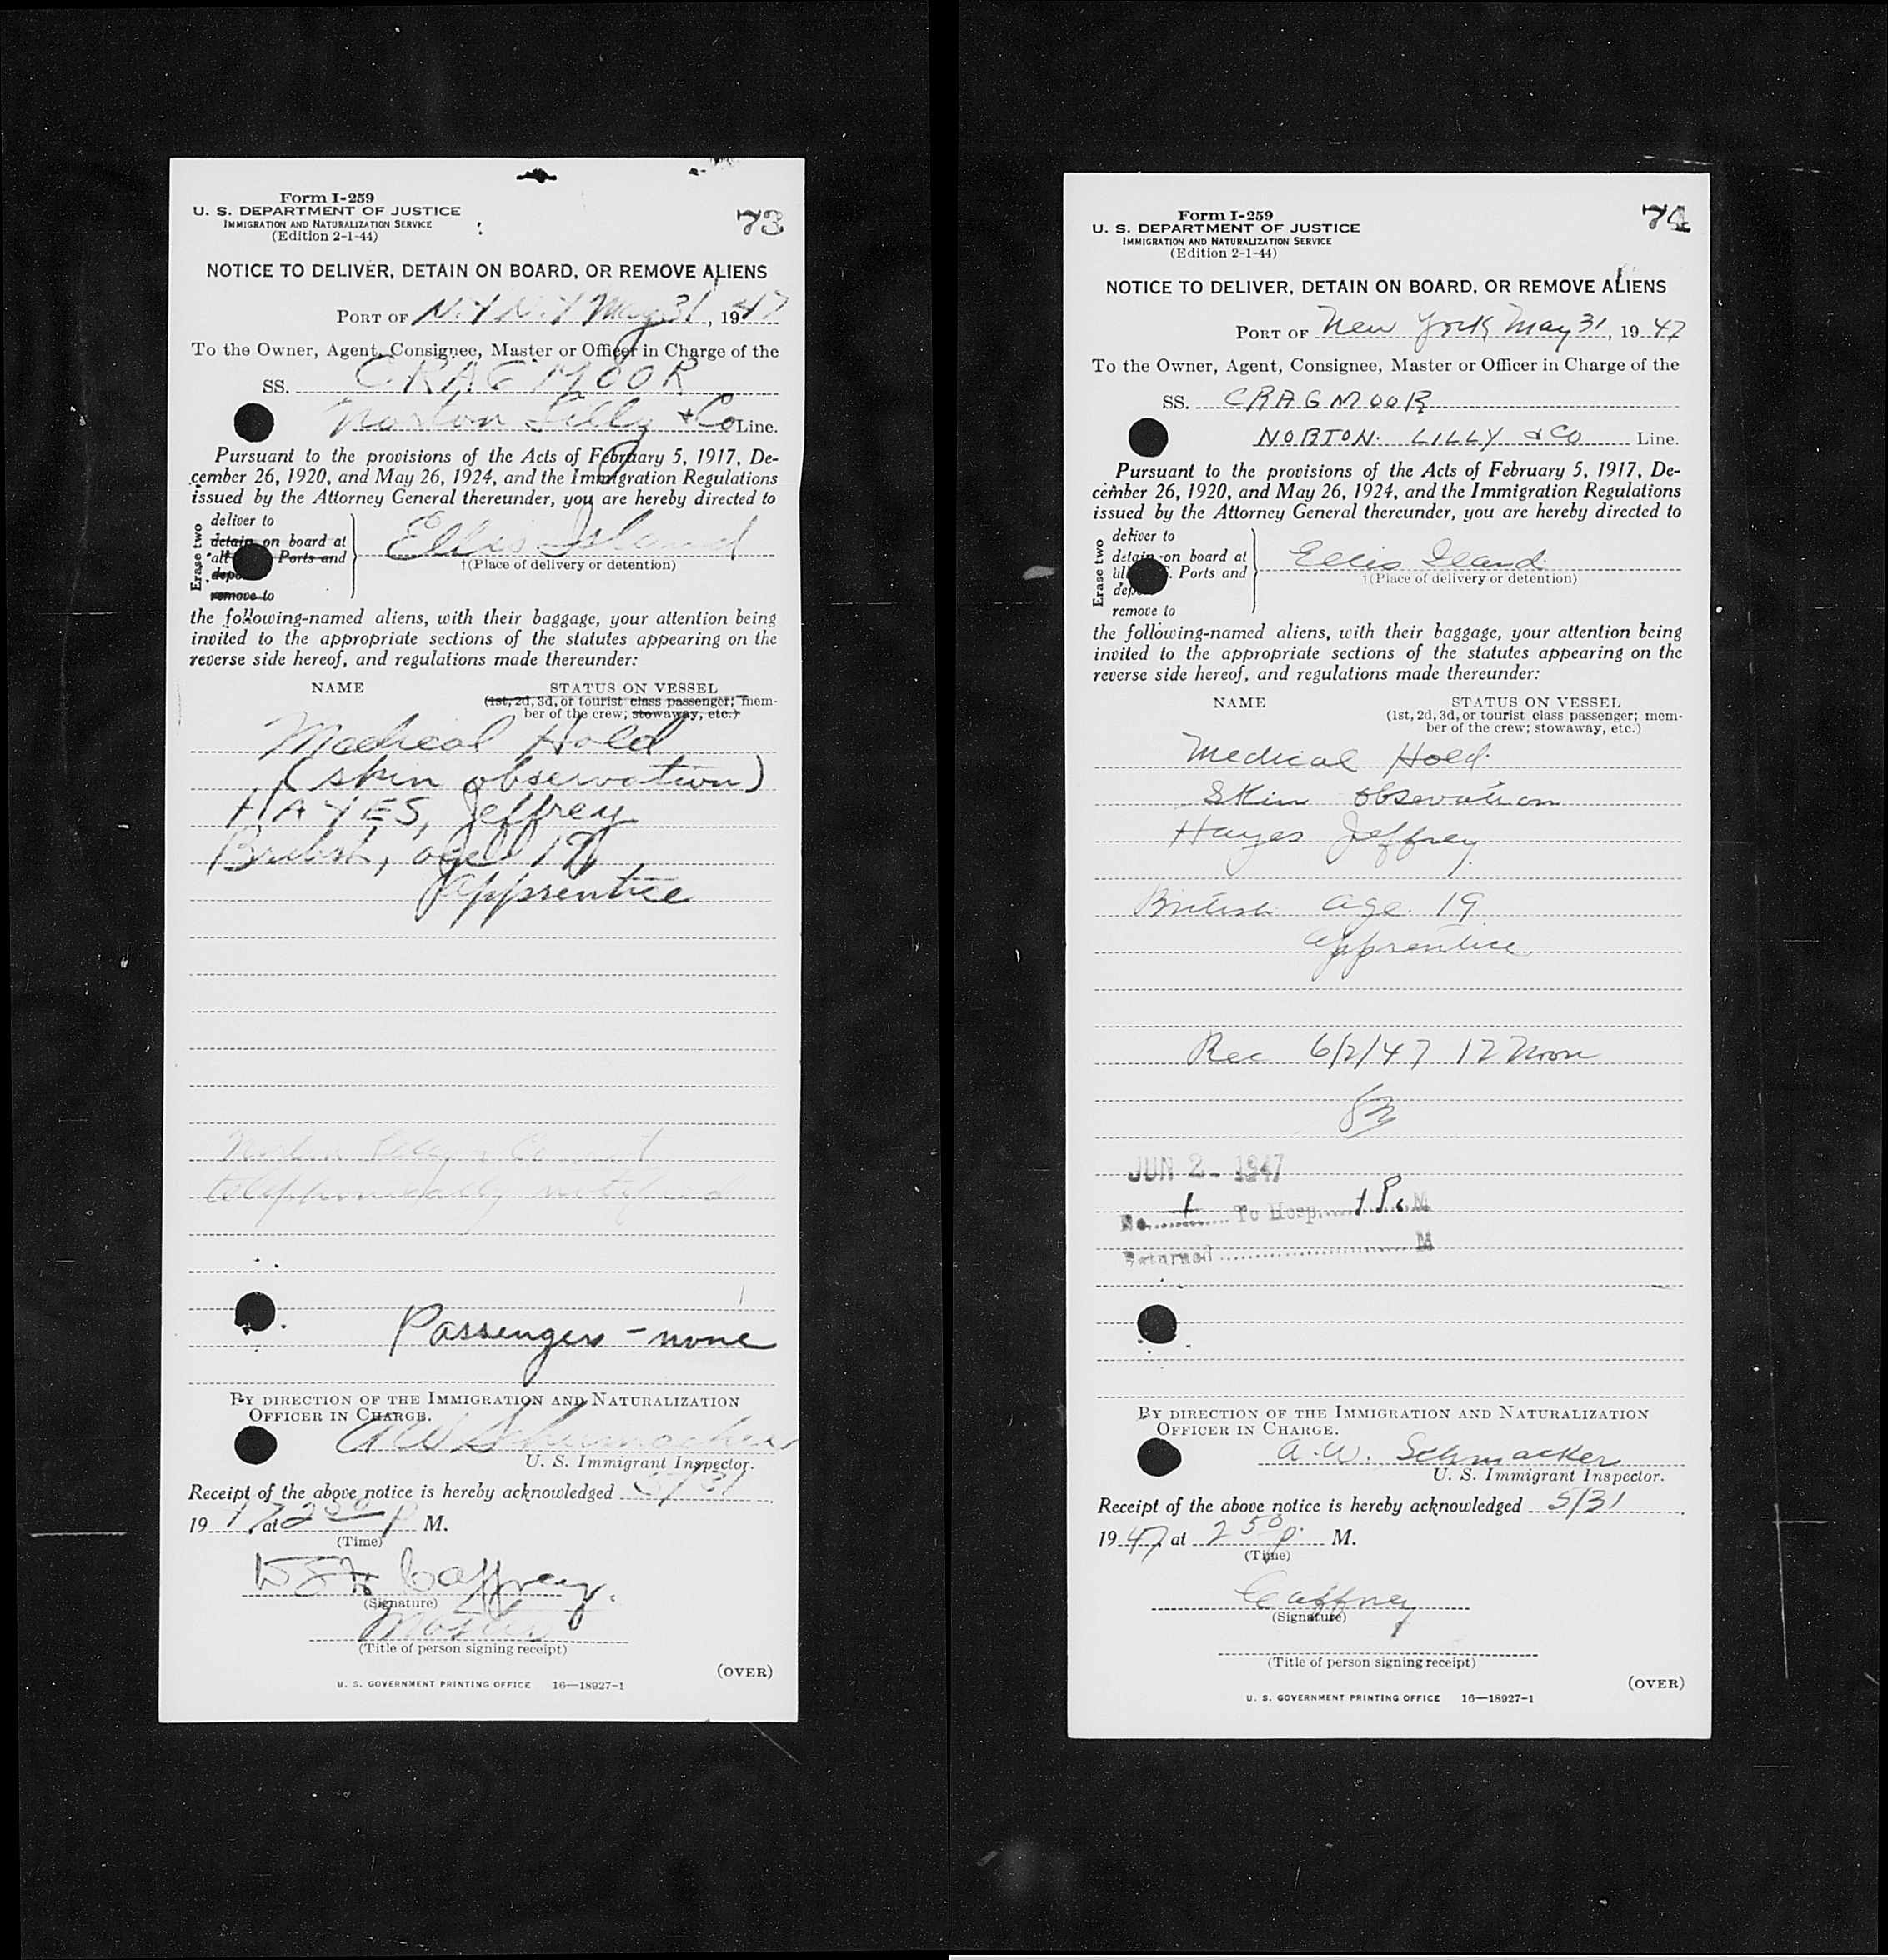 Form I-259
U. S. DEPARTMENT OF JUSTICE
IMMIGRATION AND NATURALIZATION SERVICE
(Edition 2-1-44)
73
NOTICE TO DELIVER, DETAIN ON BOARD, OR REMOVE ALIENS
PORT OF N.Y N.Y May 31, 1947
To the Owner, Agent, Consignee, Master or Officer in Charge of the
SS. CRAGMOOR
Norton Lilly + Co Line.
Pursuant to the provisions of the Acts of February 5, 1917, De-
cember 26, 1920, and May 26, 1924, and the Immigration Regulations
issued by the Attorney General thereunder, you are hereby directed to
Erase two
deliver to
detain on board at
all Ports and
remove to
Ellis Island
†(Place of delivery or detention)
the following-named aliens, with their baggage, your attention being
invited to the appropriate sections of the statutes appearing on the
reverse side hereof, and regulations made thereunder:
NAME STATUS ON VESSEL
(1st, 2d, 3d, or tourist class passenger; mem-
ber of the crew; stowaway, etc.)
Medical Hold
(skin observation)
HAYES, Jeffrey
British, age 19
apprentice
Norton Lilly + Co
telephonically notified
Passengers - none
BY DIRECTION OF THE IMMIGRATION AND NATURALIZATION
OFFICER IN CHARGE.
A W Schumacher
U. S. Immigrant Inspector.
Receipt of the above notice is hereby acknowledged 5/31
1947 at 2 50 P M.
(Time)
Caffrey
(Signature)
Master
(Title of person signing receipt)
(OVER)
U. S. GOVERNMENT PRINTING OFFICE 16—18927-1
Form I-259
U. S. DEPARTMENT OF JUSTICE
IMMIGRATION AND NATURALIZATION SERVICE
(Edition 2-1-44)
74
NOTICE TO DELIVER, DETAIN ON BOARD, OR REMOVE ALIENS
PORT OF New York May 31, 1947
To the Owner, Agent, Consignee, Master or Officer in Charge of the
SS. CRAGMOOR
NORTON. LILLY & CO Line.
Pursuant to the provisions of the Acts of February 5, 1917, De-
cember 26, 1920, and May 26, 1924, and the Immigration Regulations
issued by the Attorney General thereunder, you are hereby directed to
Erase two
deliver to
detain on board at
Ports and
remove to
Ellis Iland
†(Place of delivery or detention)
the following-named aliens, with their baggage, your attention being
invited to the appropriate sections of the statutes appearing on the
reverse side hereof, and regulations made thereunder:
NAME STATUS ON VESSEL
(1st, 2d, 3d, or tourist class passenger; mem-
ber of the crew; stowaway, etc.)
Medical Hold.
Skin obsevation
Hayes Jeffrey
British age. 19
apprentice
Rec 6/2/47 12 Noon
JUN 2 - 1947
No. 1 To Hosp. 1 P. M
Returned M
BY DIRECTION OF THE IMMIGRATION AND NATURALIZATION
OFFICER IN CHARGE.
A.W. Schmacker
U. S. Immigrant Inspector.
Receipt of the above notice is hereby acknowledged 5/31
1947 at 2 50 p. M.
(Time)
Caffney
(Signature)
(Title of person signing receipt)
(OVER)
U. S. GOVERNMENT PRINTING OFFICE 16—18927-1